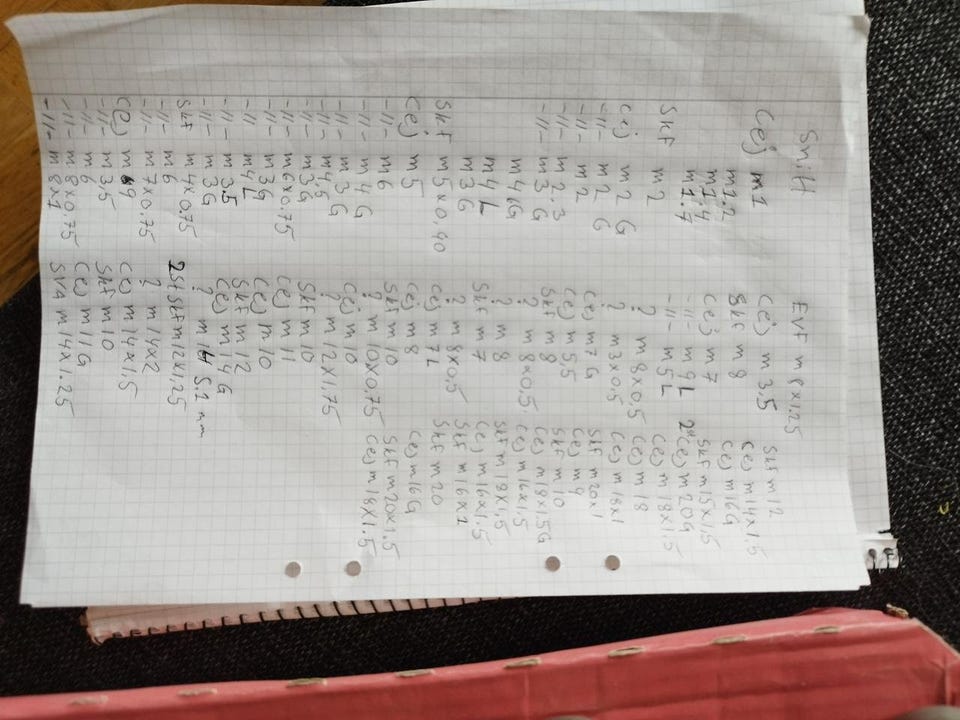 Snitt
Cej m1
m1.2
m1.4
m1.7
Skf m2
Cej m2 G
-11- m2 G
-11- m2
-11- m2.3
-11- m3 G
m4 G
m4 L
m3 G
Skf m5x0,40
Cej m5
-11- m6
-11- m4 G
-11- m3 G
-11- m4,5
-11- m3G
-11- m6x0.75
-11- m3G
-11 m4L
-11- m3.5
-11- m3G
Skf m4x0.75
-11- m6
-11- m7x0.75
Cej m9
-11- m3,5
-11- m6
-11- m8x0.75
-11- m8x1
Evf m8x1.25
Cej m3,5
Skf m8
Cej m7
-11- m9L
-11- m5L
? m8x0.5
? m3x0.5
Cej m7G
Cej m5,5
Skf m8
? m8x0.5
? m8
Skf m7
? m8x0,5
Cej m7L
Cej m8
Skf m10
? m10x0.75
Cej m10
? m12x1.75
Skf m10
Cej m11
Cej m10
Skf m12
Cej m14G
? 5.2mm
2st Skf m12x1.25
? m14x2
Cej m14x1.5
Skf m10
Cej m11G
m14x1.25
Skf m12
Cej m14x1.5
Cej m16G
Skf m15x1.5
2st Cej m20G
Cej m18x1.5
Cej m18
Cej m18x1
Skf m20x1
Cej m9
Skf m10
Cej m18x1.5G
Cej m16x1.5
Skf m18x1,5
Cej m16x1.5
Skf m16x1
Skf m20
Cej m16G
Skf m20x1.5
Cej m18x1.5